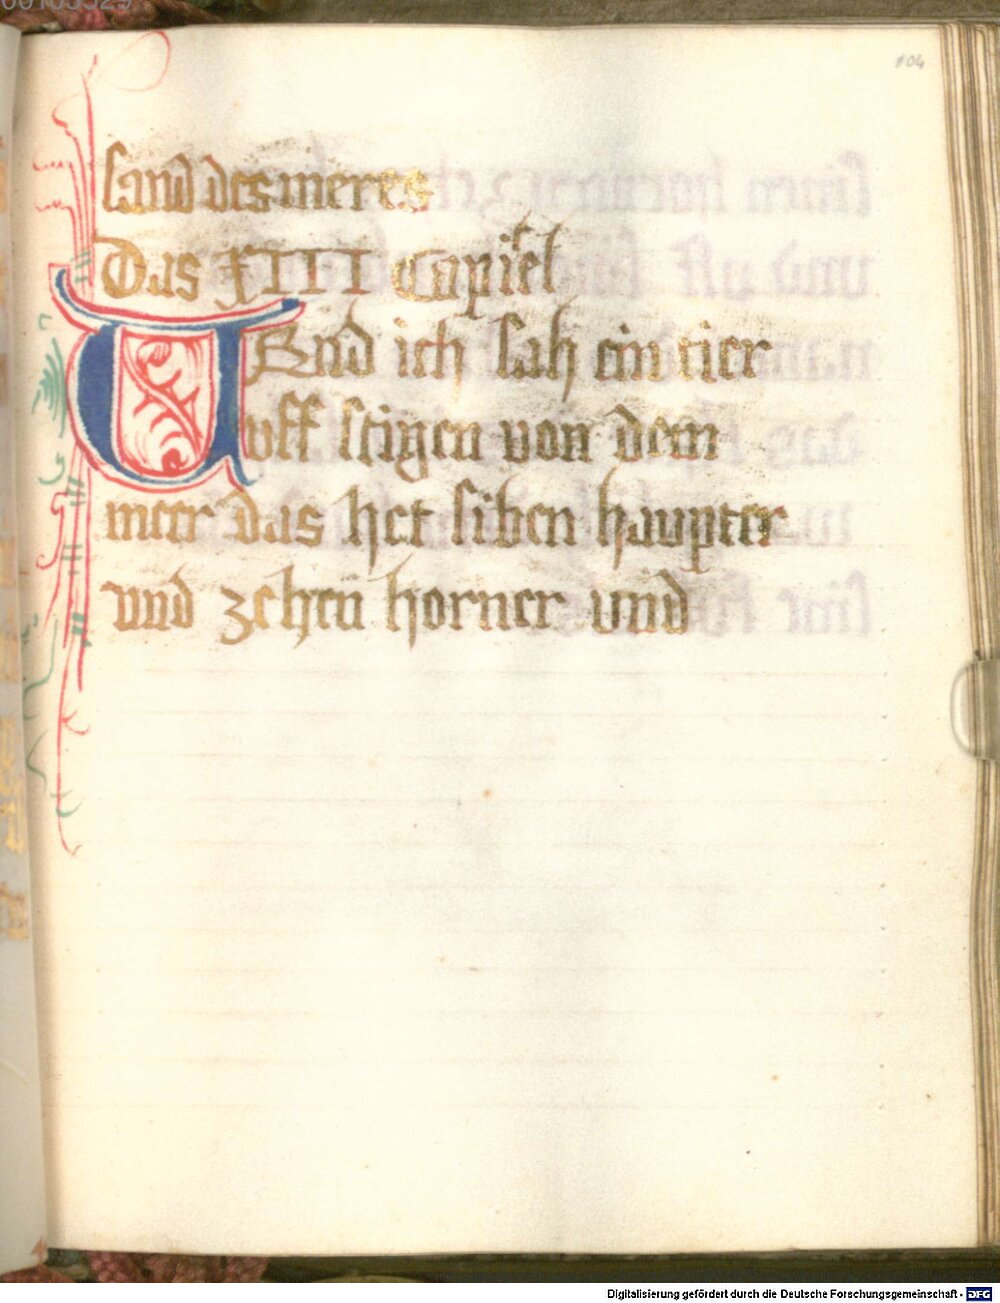 104
sand des meres
Das XIIII Capitel
VBnd ich sah ein tier
vff stigen von dem
meer das het siben haupter
vnd zehen horner vnd
Digitalisierung gefördert durch die Deutsche Forschungsgemeinschaft - DFG